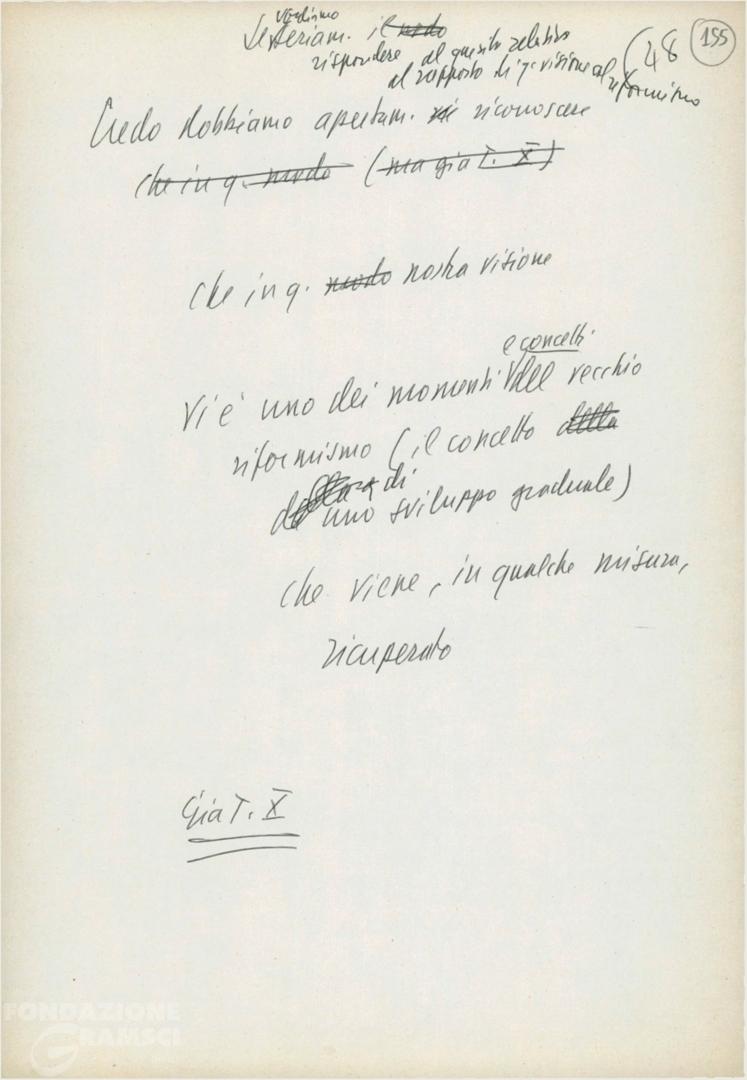 155
(48
vogliamo
Se seriam. il modo
rispondere al quesito relativo
al rapporto di q. visione al riformismo
Credo dobbiamo apertam. ri riconoscere
che in q. modo (ma già T. X)
che in q. modo nostra visione
e concetti
vi è uno dei momenti del vecchio
riformismo (il concetto della
di
di uno sviluppo graduale)
che viene, in qualche misura,
ricuperato
Già T. X
FONDAZIONE
GRAMSCI